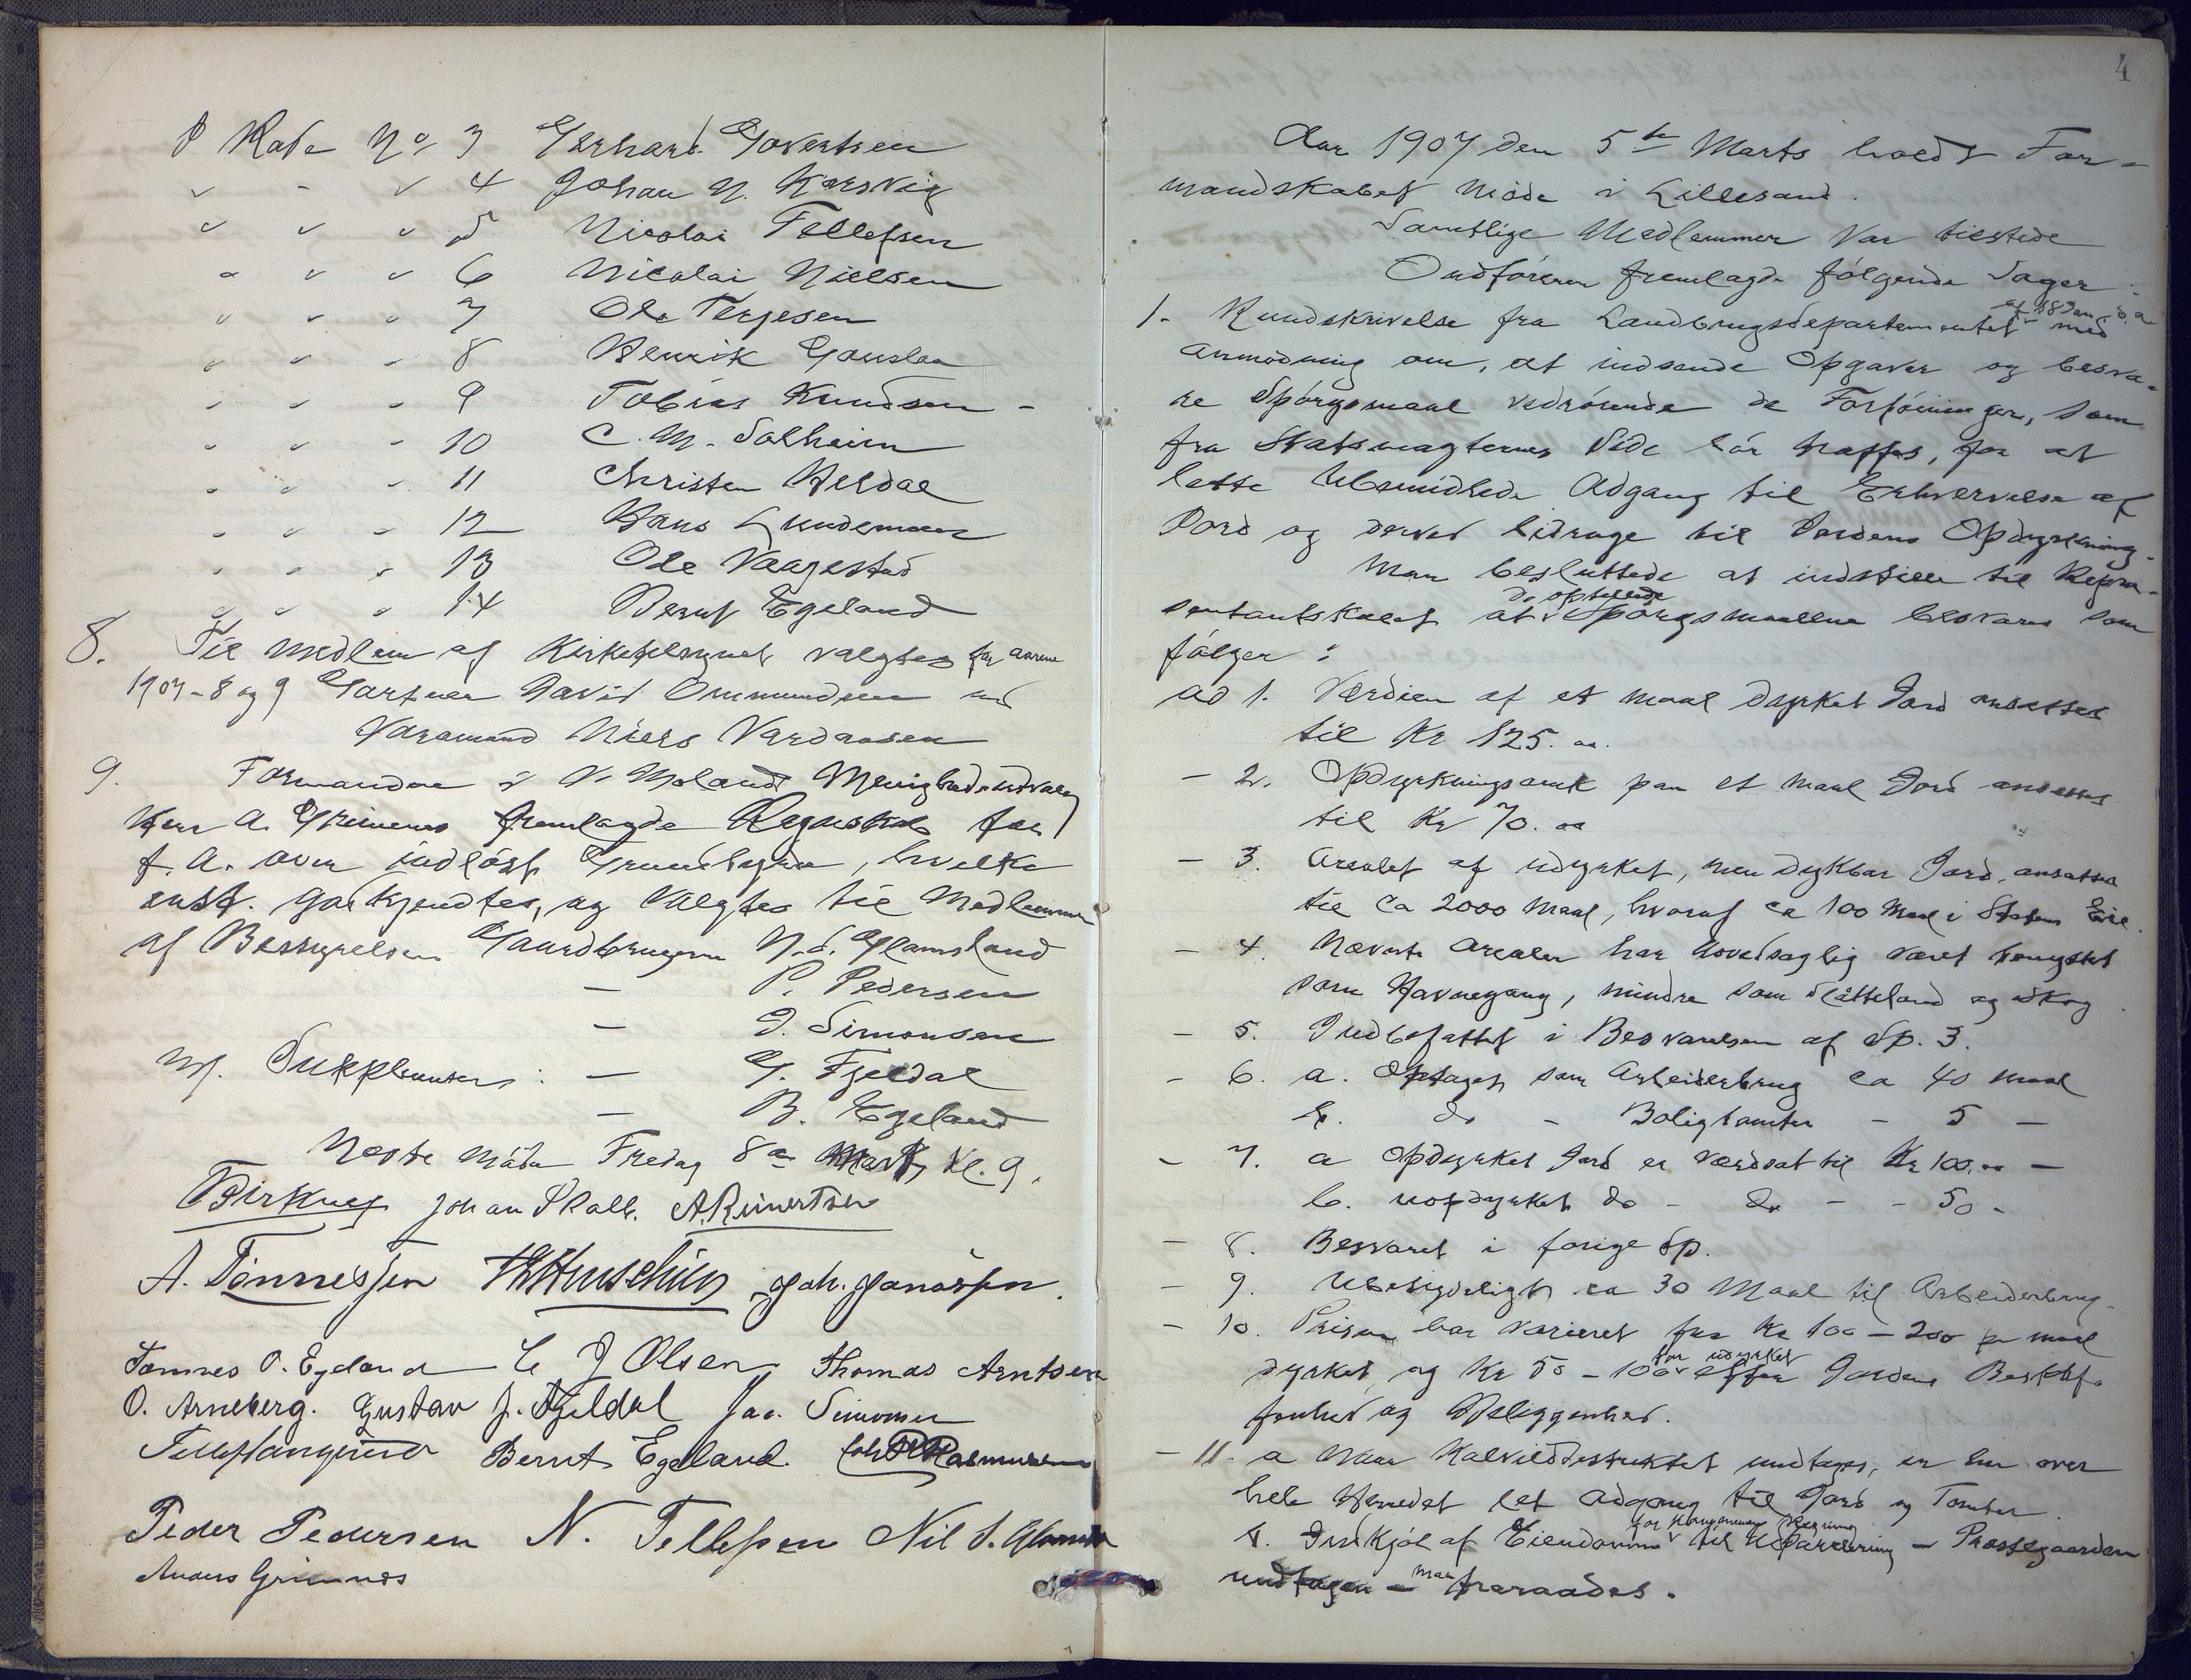 I Rode No 3 Gerhard Govertsen
" - " 4 Johan N. Korsvig
" " " 5 Nicolai Tellefsen
" " " 6 Nicolai Nielsen
" " " 7 Ole Terjesen
" " - 8 Henrik Gauslaa
" " - 9 Tobias Knudsen -
" " - 10 C. M. Solheim
" " - 11 Christen Heldal
" " - 12 Hans Lundeman
" " " 13 Ole Vaagestad
" " " 14 Bernt Egeland
8. Til Medlem af Kirketilsynet valgtes for Aarene
1907-8 og 9 Gartner David Ommundsen med
Varamand Niels Vardaasen
9. Formanden i V. Moland Menighedsudvalg
Herr A. Grimenes fremlagde Regnskab for
f. A. over indløst Grundbygsel, hvilke
enst. godkjendtes, og valgtes til Medlemmer
af Bestyrelsen Gaardbrugerne N. S. Glamsland
— P. Pedersen
— J. Simonsen
Suppleanter: — G. Fjeldal
— B. Egeland
Næste Møde Fredag 8de Marts Kl. 9.
Birknes Johan Skalb. A. Reinertsen
A. Tönnessen Joh. Jonassen.
Tønnes O. Egeland C J Olsen Thomas Arntsen
O. Arneberg. Gustav J. Fjeldal Jac. Simonsen
Bernt Egeland. Rasmussen
Peder Pedersen N. Tellefsen Nil S. Glamsla
Anders Grimenes
4
Aar 1907 den 5te Marts holdt For-
mandskabet Møde i Lillesand.
Samtlige Medlemmer var tilstede
Ordføreren fremlagde følgende Sager:
1. Rundskrivelse fra Landbrugsdepartementet af 18 Jan. d. a. med
Anmodning om, at indsende Opgaver og besva-
re Spørgsmaal vedrørende de Forføininger, som
fra Statsmagternes Side bør træffes, for at
lette Ubemidlede Adgang til Erhvervelse af
Jord og derved bidrage til Jordens Opdyrkning.
Man besluttede at indstille til Repræ-
sentantskabet at de opstillede Spørgsmaalene besvares som
følger:
ad 1. Værdien af et Maal dyrket Jord ansættes
til Kr 125.00.
- 2. Opdyrkningsomk paa et Maal Jord ansættes
til Kr 70.00
- 3. Arealet af udyrket, men dyrkbar Jord, ansættes
til ca 2000 Maal, hvoraf ca 100 Maal i Statens Eie.
- 4. Nævnte Arealer har hovedsaglig været benyttet
som Havnegang, mindre som Slåtteland og Skog.
- 5. Indbefattet i Besvarelsen af Sp. 3.
- 6. a. Optaget som Arbeiderbrug ca 40 Maal
b. do - Boligtomter - 5 —
- 7. a Opdyrket Jord er værdsat til Kr 100.00 —
b. uopdyrket do - do - - 50 -
- 8. Besvaret i forrige Sp.
- 9. Ubetydeligt ca 30 Maal til Arbeiderbrug.
- 10. Prisen har varieret fra Kr 100 - 200 pr Maal
dyrket, og Kr 50 - 100 for udyrket efter Jordens Beskaf-
fenhed og Beliggenhed.
- 11. a Naar Kalvilddistriktet undtages, er her over
hele Herredet let Adgang til Jord og Tomter.
b. Indkjøb af Eiendomme for Kommunens Regning til Udparcellering — Præstegaarden
undtagen — maa fraraades.